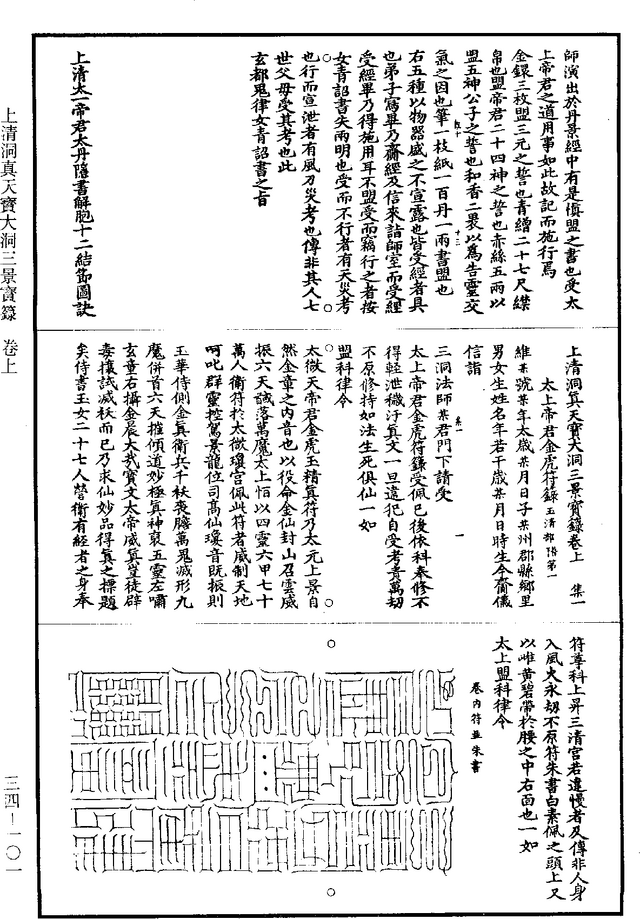 師演出於丹景經中有是慎盟之書也受太
上帝君之道用事如此故記而施行焉
金鐶三枚盟三元之誓也青繒二十七尺緤
帛也盟帝君二十四神之誓也赤絲五兩以
盟五神公子之誓也和香二裹以為告靈交
氣之因也筆一枝紙一百丹一兩書盟也
右五種以物器盛之不宣露也皆受經者具
也弟子寫畢乃齋經及信來詣師室而受經
受經畢乃得施用耳不盟受而竊行之者按
女青詔書失兩明也受而不行者有天災考
也行而宣泄者有風刀災考也傳非其人七
世父母受其考也此
玄都鬼律女青詔書之旨
上清太一帝君太丹隱書解胞十二結節圖訣
上清洞真天寶大洞三景寶籙卷上 集一
太上帝君金虎符籙玉清部階第一
維某號某年太歲某月日子某州郡縣鄉里
男女生姓名年若干歲某月日時生今齎儀
信詣
三洞法師某君門下請受
太上帝君金虎符籙受佩已後依科奉修不
得輕泄穢汙真文一旦違犯自受考責萬劫
不原修持如法生死俱仙一如
盟科律令
太微天帝君金虎玉精真符乃太元上景自
然金章之內音也以役命金仙封山召雲威
振六天誠落萬魔太上恒以四靈六甲七十
萬人衛符於太微瓊宮佩此符者威制天地
呵叱群靈控駕景龍位司高仙瓊音既振則
玉華侍側金真衛兵千秋喪膽萬鬼滅形九
魔併首六天摧傾道妙極真神哀五靈左嘯
玄童右攝金晨大哉寶文太帝威真豈徒辟
毒攘試滅秋而已乃求仙妙品得真之標題
矣侍書玉女二十七人營衛有經者之身奉
符尊科上昇三清宮若違慢者及傳非人身
入風火永劫不原符朱書白素佩之頭上又
以雌黃碧帶於腰之中右面也一如
太上盟科律令
卷內符並朱書
上清洞真天寶大洞三景寶籙 卷上
三四–一〇一